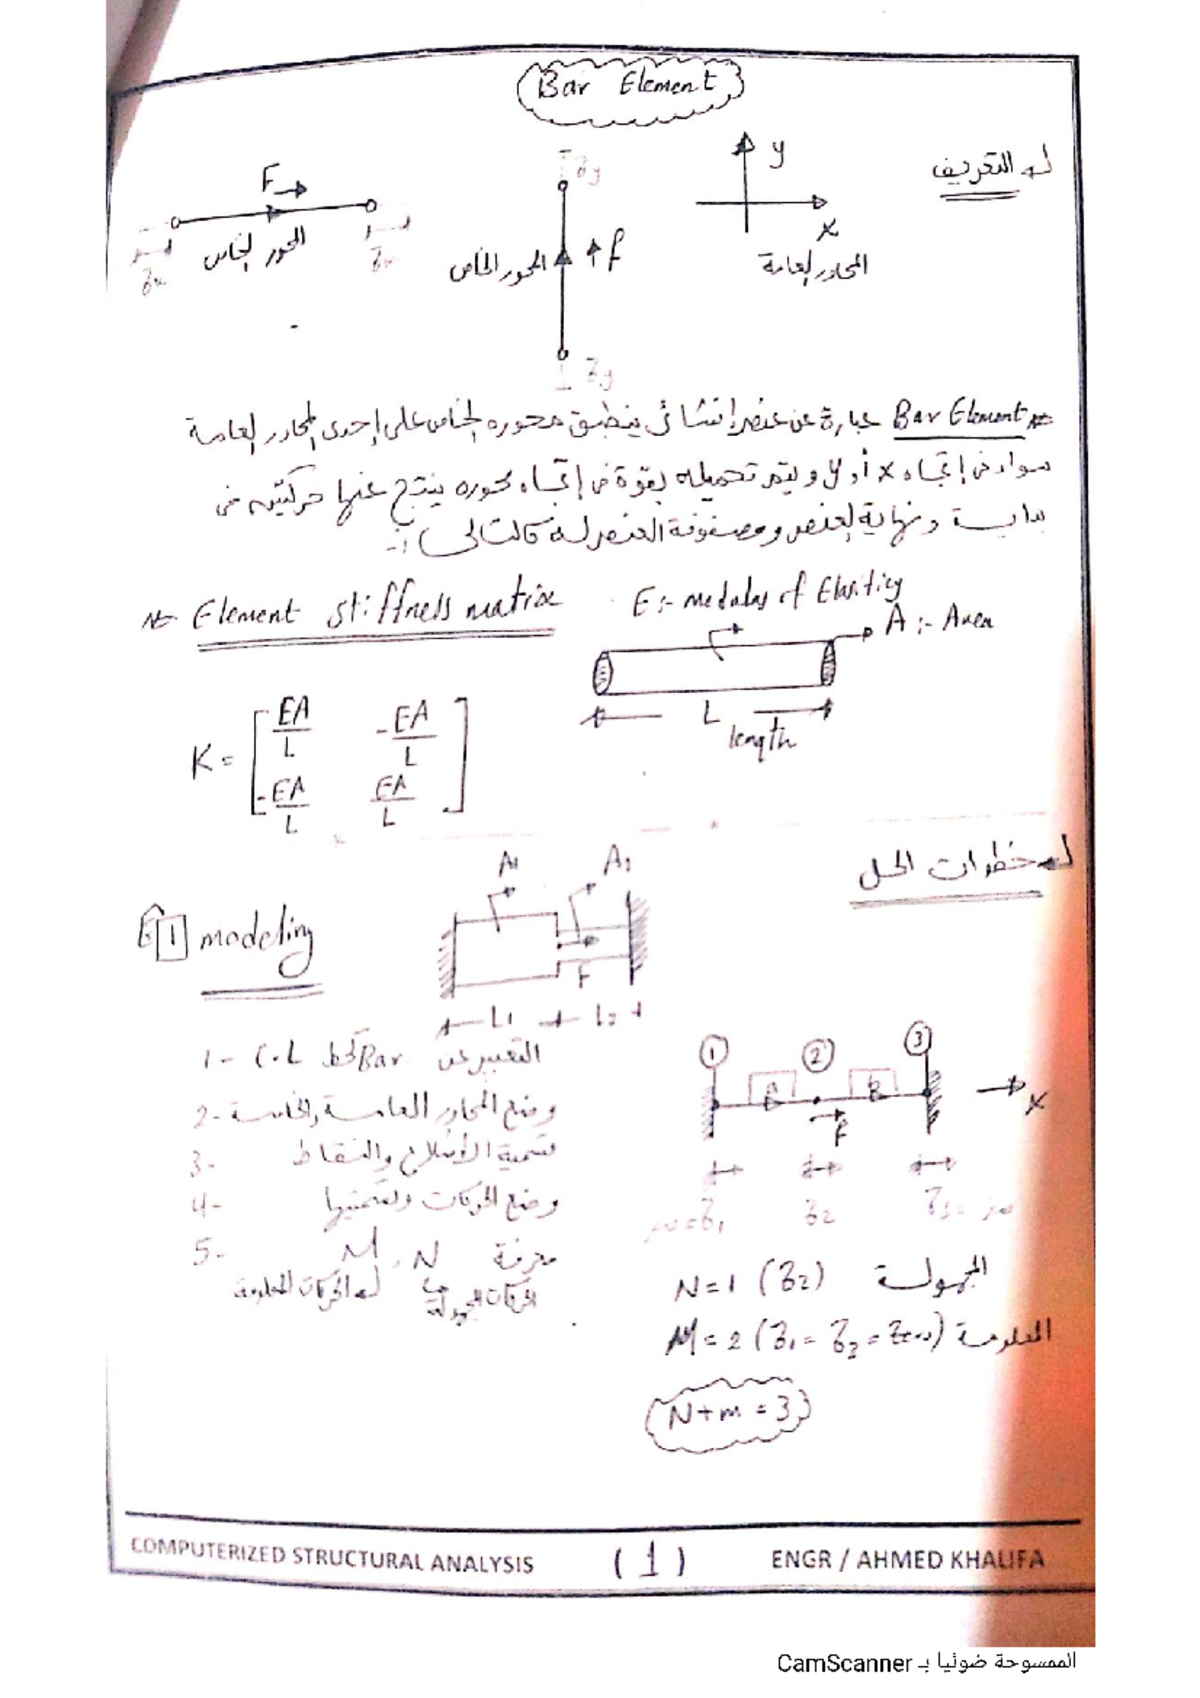 Bar Element
له التعريف
F
المحور الخاص
المحور الخاص
f
y
x
المحاور العامة
Bar Element عبارة عن عنصر إنشائى ينطبق محوره الخاص على إحدى المحاور العامة
سواء فى إتجاه x أو y ويتم تحميله بقوة فى إتجاه محوره ينتج عنها حركتين فى
بداية ونهاية العنصر ومصفوفة العنصر له كالتالى :-
Element stiffness matrix
E :- modulas of Elasticity
A :- Area
L
length
K = [ EA/L  -EA/L
-EA/L  EA/L ]
له خطوات الحل
1 modeling
A1
A2
F
L1
L2
1- التعبير عن Bar كخط C.L
2- وضع المحاور العامة والخاصة
3- تسمية الأضلاع والنقاط
4- وضع الحركات وتسميتها
5- معرفة N , M
الحركات المجهولة
له الحركات المعلومة
1
2
3
A
B
F
x
N = 1 (Z2) المجهولة
M = 2 (Z1 = Z3 = Zero) المعلومة
N + m = 3
COMPUTERIZED STRUCTURAL ANALYSIS
( 1 )
ENGR / AHMED KHALIFA
الممسوحة ضوئيا بـ CamScanner